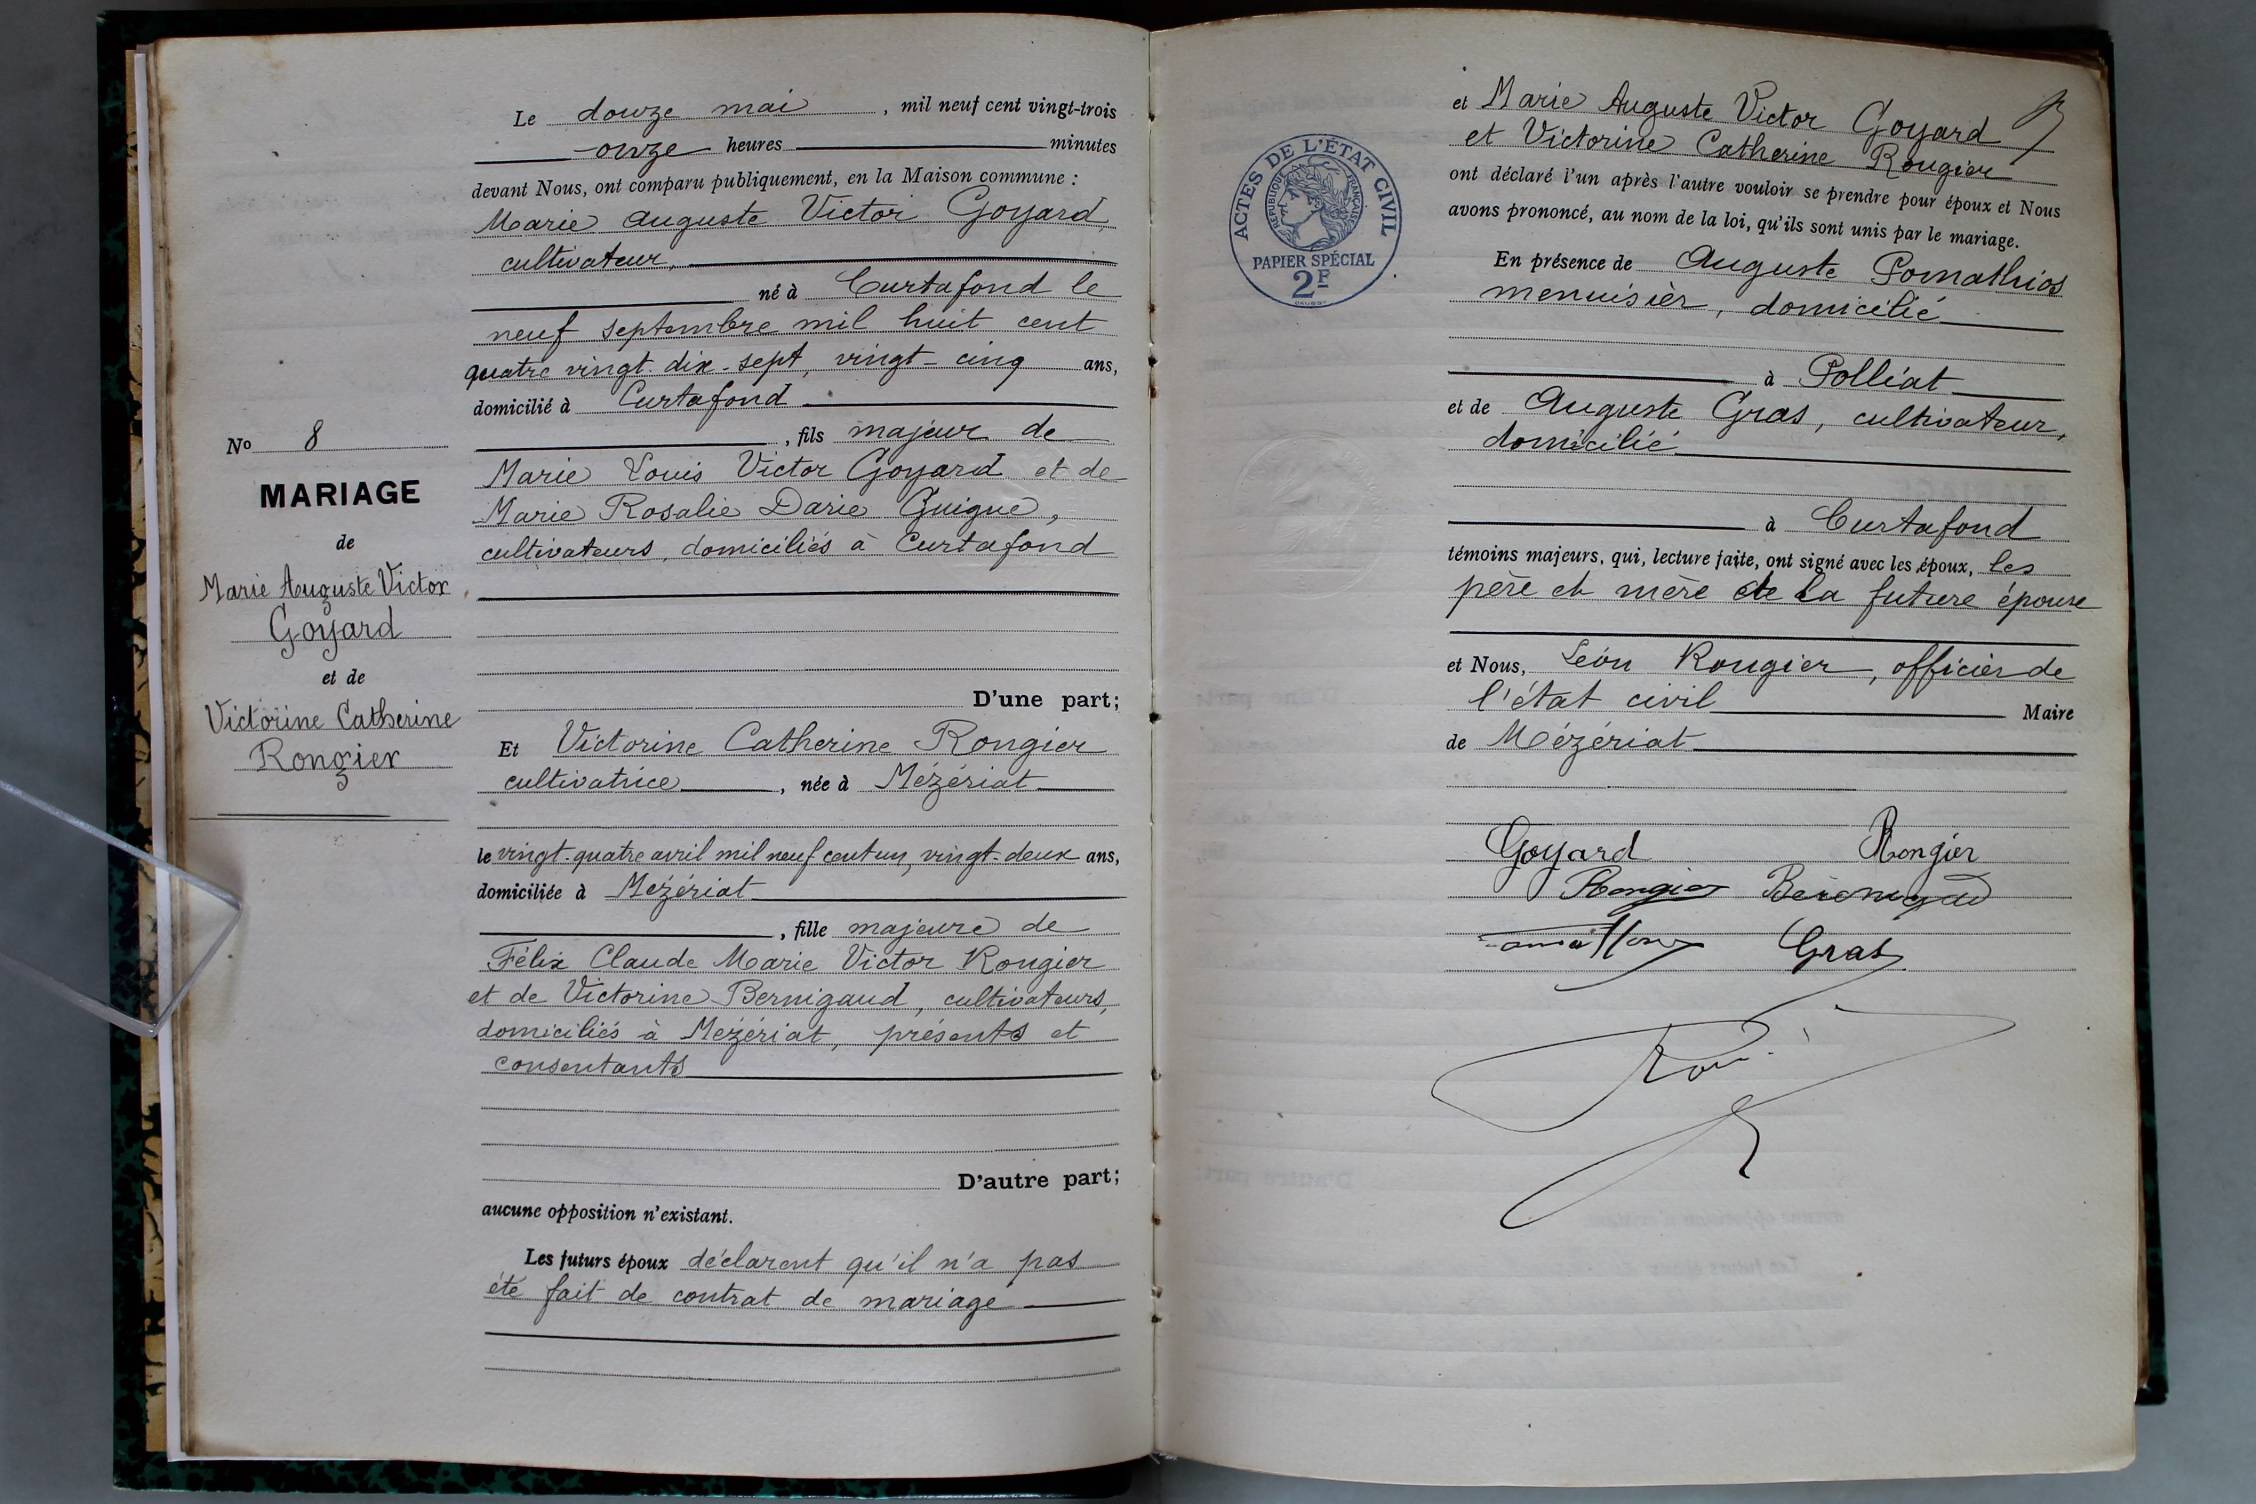 Le douze mai, mil neuf cent vingt-trois
onze heures minutes
devant Nous, ont comparu publiquement, en la Maison commune :
Marie Auguste Victor Goyard,
cultivateur,
né à Curtafond le
neuf septembre mil huit cent
quatre vingt-dix-sept, vingt-cinq ans,
domicilié à Curtafond
, fils majeur de
Marie Louis Victor Goyard et de
Marie Rosalie Darie Guigue,
cultivateurs, domiciliés à Curtafond
D'une part;
Et Victorine Catherine Rongier
cultivatrice, née à Mézériat
le vingt-quatre avril mil neuf cent un, vingt-deux ans,
domiciliée à Mézériat
, fille majeure de
Félix Claude Marie Victor Rongier
et de Victorine Bernigaud, cultivateurs,
domiciliés à Mézériat, présents et
consentants
D'autre part;
aucune opposition n'existant.
Les futurs époux déclarent qu'il n'a pas
été fait de contrat de mariage
No 8
MARIAGE
de
Marie Auguste Victor
Goyard
et de
Victorine Catherine
Rongier
ACTES DE L'ÉTAT CIVIL
RÉPUBLIQUE FRANÇAISE
PAPIER SPÉCIAL
2F
et Marie Auguste Victor Goyard
et Victorine Catherine Rongier
ont déclaré l'un après l'autre vouloir se prendre pour époux et Nous
avons prononcé, au nom de la loi, qu'ils sont unis par le mariage.
En présence de Auguste Pomathios
menuisier, domicilié
à Polliat
et de Auguste Gras, cultivateur,
domicilié
à Curtafond
témoins majeurs, qui, lecture faite, ont signé avec les époux, les
père et mère de la future épouse
et Nous, Léon Rougier, officier de
l'état civil Maire
de Mézériat
Goyard Rongier
Rongier
Gras